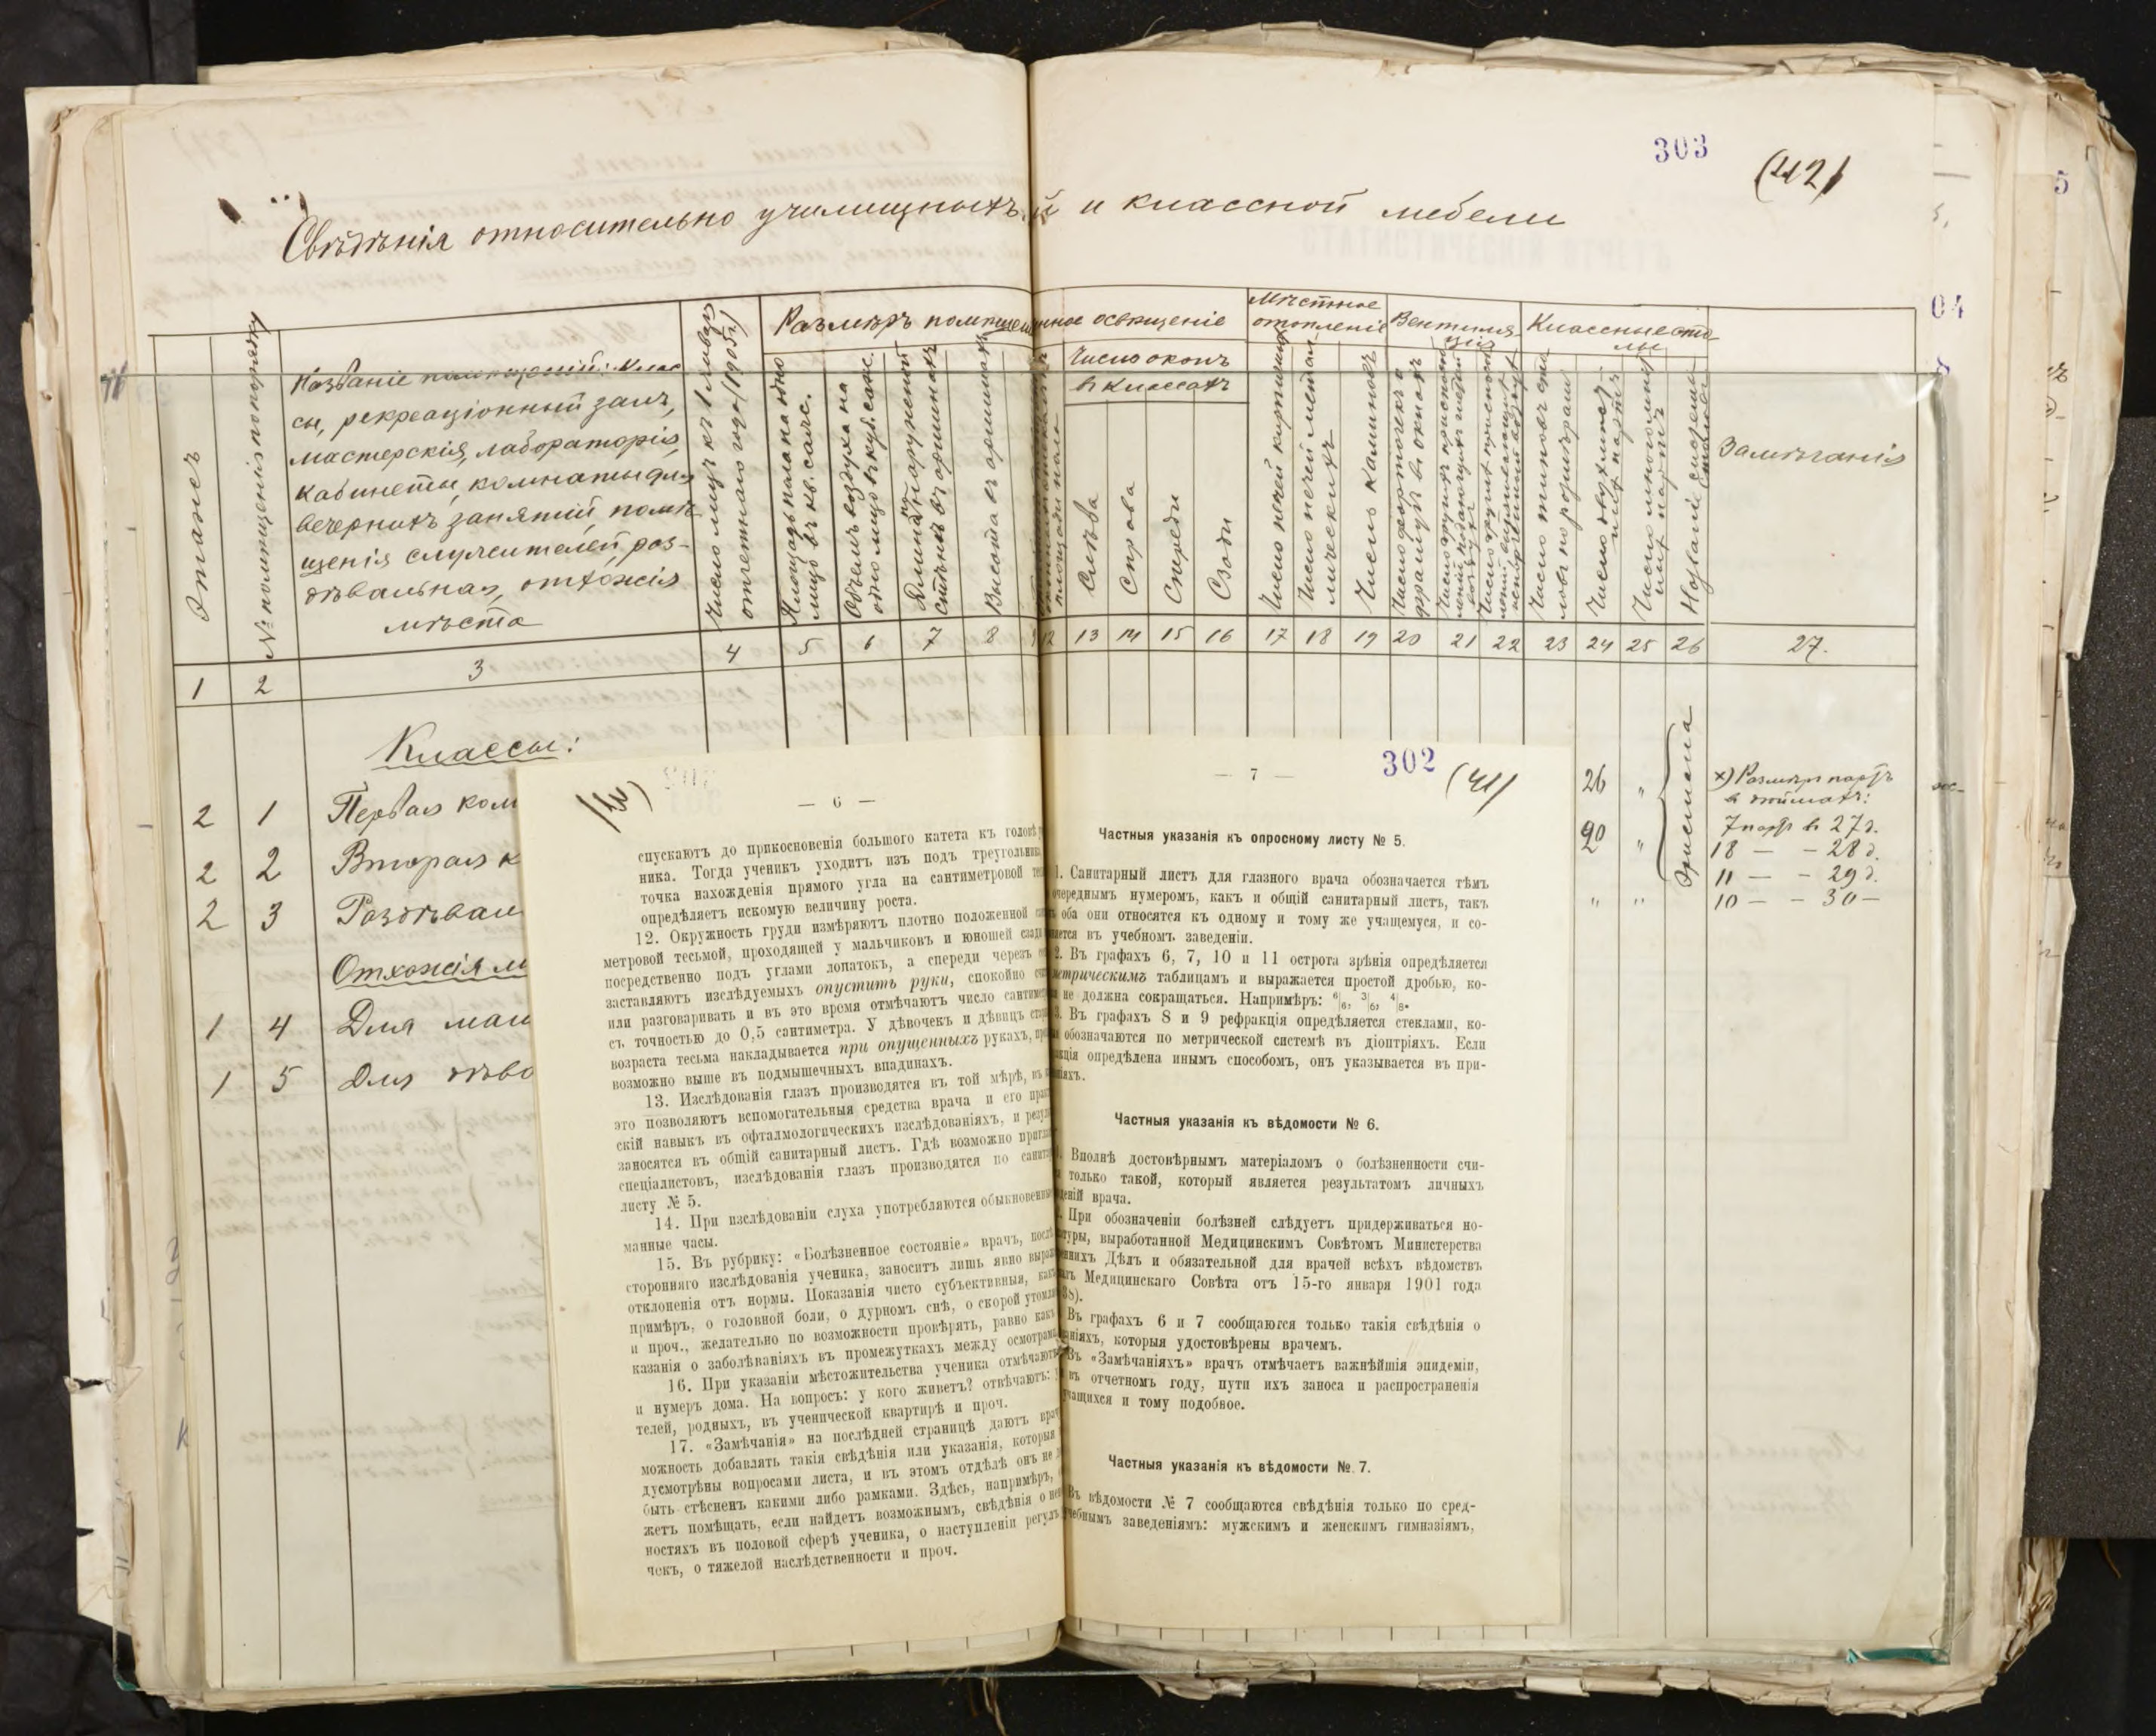 303 (42)
Свѣдѣнія относительно училищныхъ и классной мебели
Этажъ
№ помѣщенія по порядку
Названіе помѣщеній: Клас
сы, рекреаціонный залъ,
мастерскія, лабораторія,
кабинеты, комнаты для
вечернихъ занятій, помѣ
щенія служителей, раз-
дѣвальная, отхожія
мѣста
Число лицъ къ 1 Января
отчетнаго года (1905 г.)
Размѣръ помѣщен
Площадь пола на одно
лицо въ кв. саж.
Объемъ воздуха на
одно лицо въ куб. саж.
Длина наружной
стѣны въ аршинахъ
Высота въ аршинахъ
нное освѣщеніе
Число оконъ
въ классахъ
Слѣва
Справа
Спереди
Сзади
Мѣстное
отопленіе
Число печей кирпичныхъ
Число печей метал
лическихъ
Число каминовъ
Вентиля
ція
Число форточекъ и
фрамугъ въ окнахъ
Классные сто
лы
Число типовъ сто
ловъ по размѣрамъ
Число двухмѣст
ныхъ партъ
Число многомѣст
ныхъ партъ
Замѣчанія
1 2 3 4 5 6 7 8 12 13 14 15 16 17 18 19 20 21 22 23 24 25 26 27.
Классы:
2 1 Первая ком
2 2 Вторая к
2 3 Раздѣвал
Отхожія м
1 4 Для мал
1 5 Для дѣво
26 "
20 "
" "
х) Размѣръ партъ
въ дюймахъ:
7 партъ въ 27 д.
18 — - 28 д.
11 — - 29 д.
10 — - 30 —
— 6 —
спускаютъ до прикосновенія большого катета къ головѣ
ника. Тогда ученикъ уходитъ изъ подъ треугольника
точка нахожденія прямого угла на сантиметровой
опредѣляетъ искомую величину роста.
12. Окружность груди измѣряютъ плотно положенной
метровой тесьмой, проходящей у мальчиковъ и юношей сзади
посредственно подъ углами лопатокъ, а спереди черезъ
заставляютъ изслѣдуемыхъ опустить руки, спокойно
или разговаривать и въ это время отмѣчаютъ число сантимет
съ точностью до 0,5 сантиметра. У дѣвочекъ и дѣвицъ
возраста тесьма накладывается при опущенныхъ рукахъ,
возможно выше въ подмышечныхъ впадинахъ.
13. Изслѣдованія глазъ производятся въ той мѣрѣ, въ
это позволяютъ вспомогательныя средства врача и его прак
скій навыкъ въ офталмологическихъ изслѣдованіяхъ, и резул
заносятся въ общій санитарный листъ. Гдѣ возможно пригла
спеціалистовъ, изслѣдованія глазъ производятся по санита
листу № 5.
14. При изслѣдованіи слуха употребляются обыкновенные
манные часы.
15. Въ рубрику: «Болѣзненное состояніе» врачъ, послѣ
сторонняго изслѣдованія ученика, заноситъ лишь явно выраж
отклоненія отъ нормы. Показанія чисто субъективныя, какъ
примѣръ, о головной боли, о дурномъ снѣ, о скорой утомля
и проч., желательно по возможности провѣрять, равно какъ
казанія о заболѣваніяхъ въ промежуткахъ между осмотрами
16. При указаніи мѣстожительства ученика отмѣчаютъ
и нумеръ дома. На вопросъ: у кого живетъ? отвѣчаютъ: у
телей, родныхъ, въ ученической квартирѣ и проч.
17. «Замѣчанія» на послѣдней страницѣ даютъ врач
можность добавлять такія свѣдѣнія или указанія, которыя
дусмотрѣны вопросами листа, и въ этомъ отдѣлѣ онъ не
быть стѣсненъ какими либо рамками. Здѣсь, напримѣръ,
жетъ помѣщать, если найдетъ возможнымъ, свѣдѣнія о нен
ностяхъ въ половой сферѣ ученика, о наступленіи регулъ
чекъ, о тяжелой наслѣдственности и проч.
— 7 —
302 (41)
Частныя указанія къ опросному листу № 5.
1. Санитарный листъ для глазного врача обозначается тѣмъ
очереднымъ нумеромъ, какъ и общій санитарный листъ, такъ
оба они относятся къ одному и тому же учащемуся, и со-
ается въ учебномъ заведеніи.
2. Въ графахъ 6, 7, 10 и 11 острота зрѣнія опредѣляется
етрическимъ таблицамъ и выражается простой дробью, ко-
не должна сокращаться. Напримѣръ: 6/6, 3/6, 4/8.
3. Въ графахъ 8 и 9 рефракція опредѣляется стеклами, ко-
обозначаются по метрической системѣ въ діоптріяхъ. Если
кція опредѣлена инымъ способомъ, онъ указывается въ при-
ніяхъ.
Частныя указанія къ вѣдомости № 6.
Вполнѣ достовѣрнымъ матеріаломъ о болѣзненности счи-
только такой, который является результатомъ личныхъ
деній врача.
При обозначеніи болѣзней слѣдуетъ придерживаться но-
туры, выработанной Медицинскимъ Совѣтомъ Министерства
еннихъ Дѣлъ и обязательной для врачей всѣхъ вѣдомствъ
Медицинскаго Совѣта отъ 15-го января 1901 года
38).
Въ графахъ 6 и 7 сообщаются только такія свѣдѣнія о
ніяхъ, которыя удостовѣрены врачемъ.
Въ «Замѣчаніяхъ» врачъ отмѣчаетъ важнѣйшія эпидеміи,
въ отчетномъ году, пути ихъ заноса и распространенія
чащихся и тому подобное.
Частныя указанія къ вѣдомости № 7.
Въ вѣдомости № 7 сообщаются свѣдѣнія только по сред-
чебнымъ заведеніямъ: мужскимъ и женскимъ гимназіямъ,